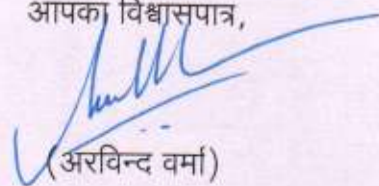 आपका विश्वासपात्र,
(अरविन्द वर्मा)